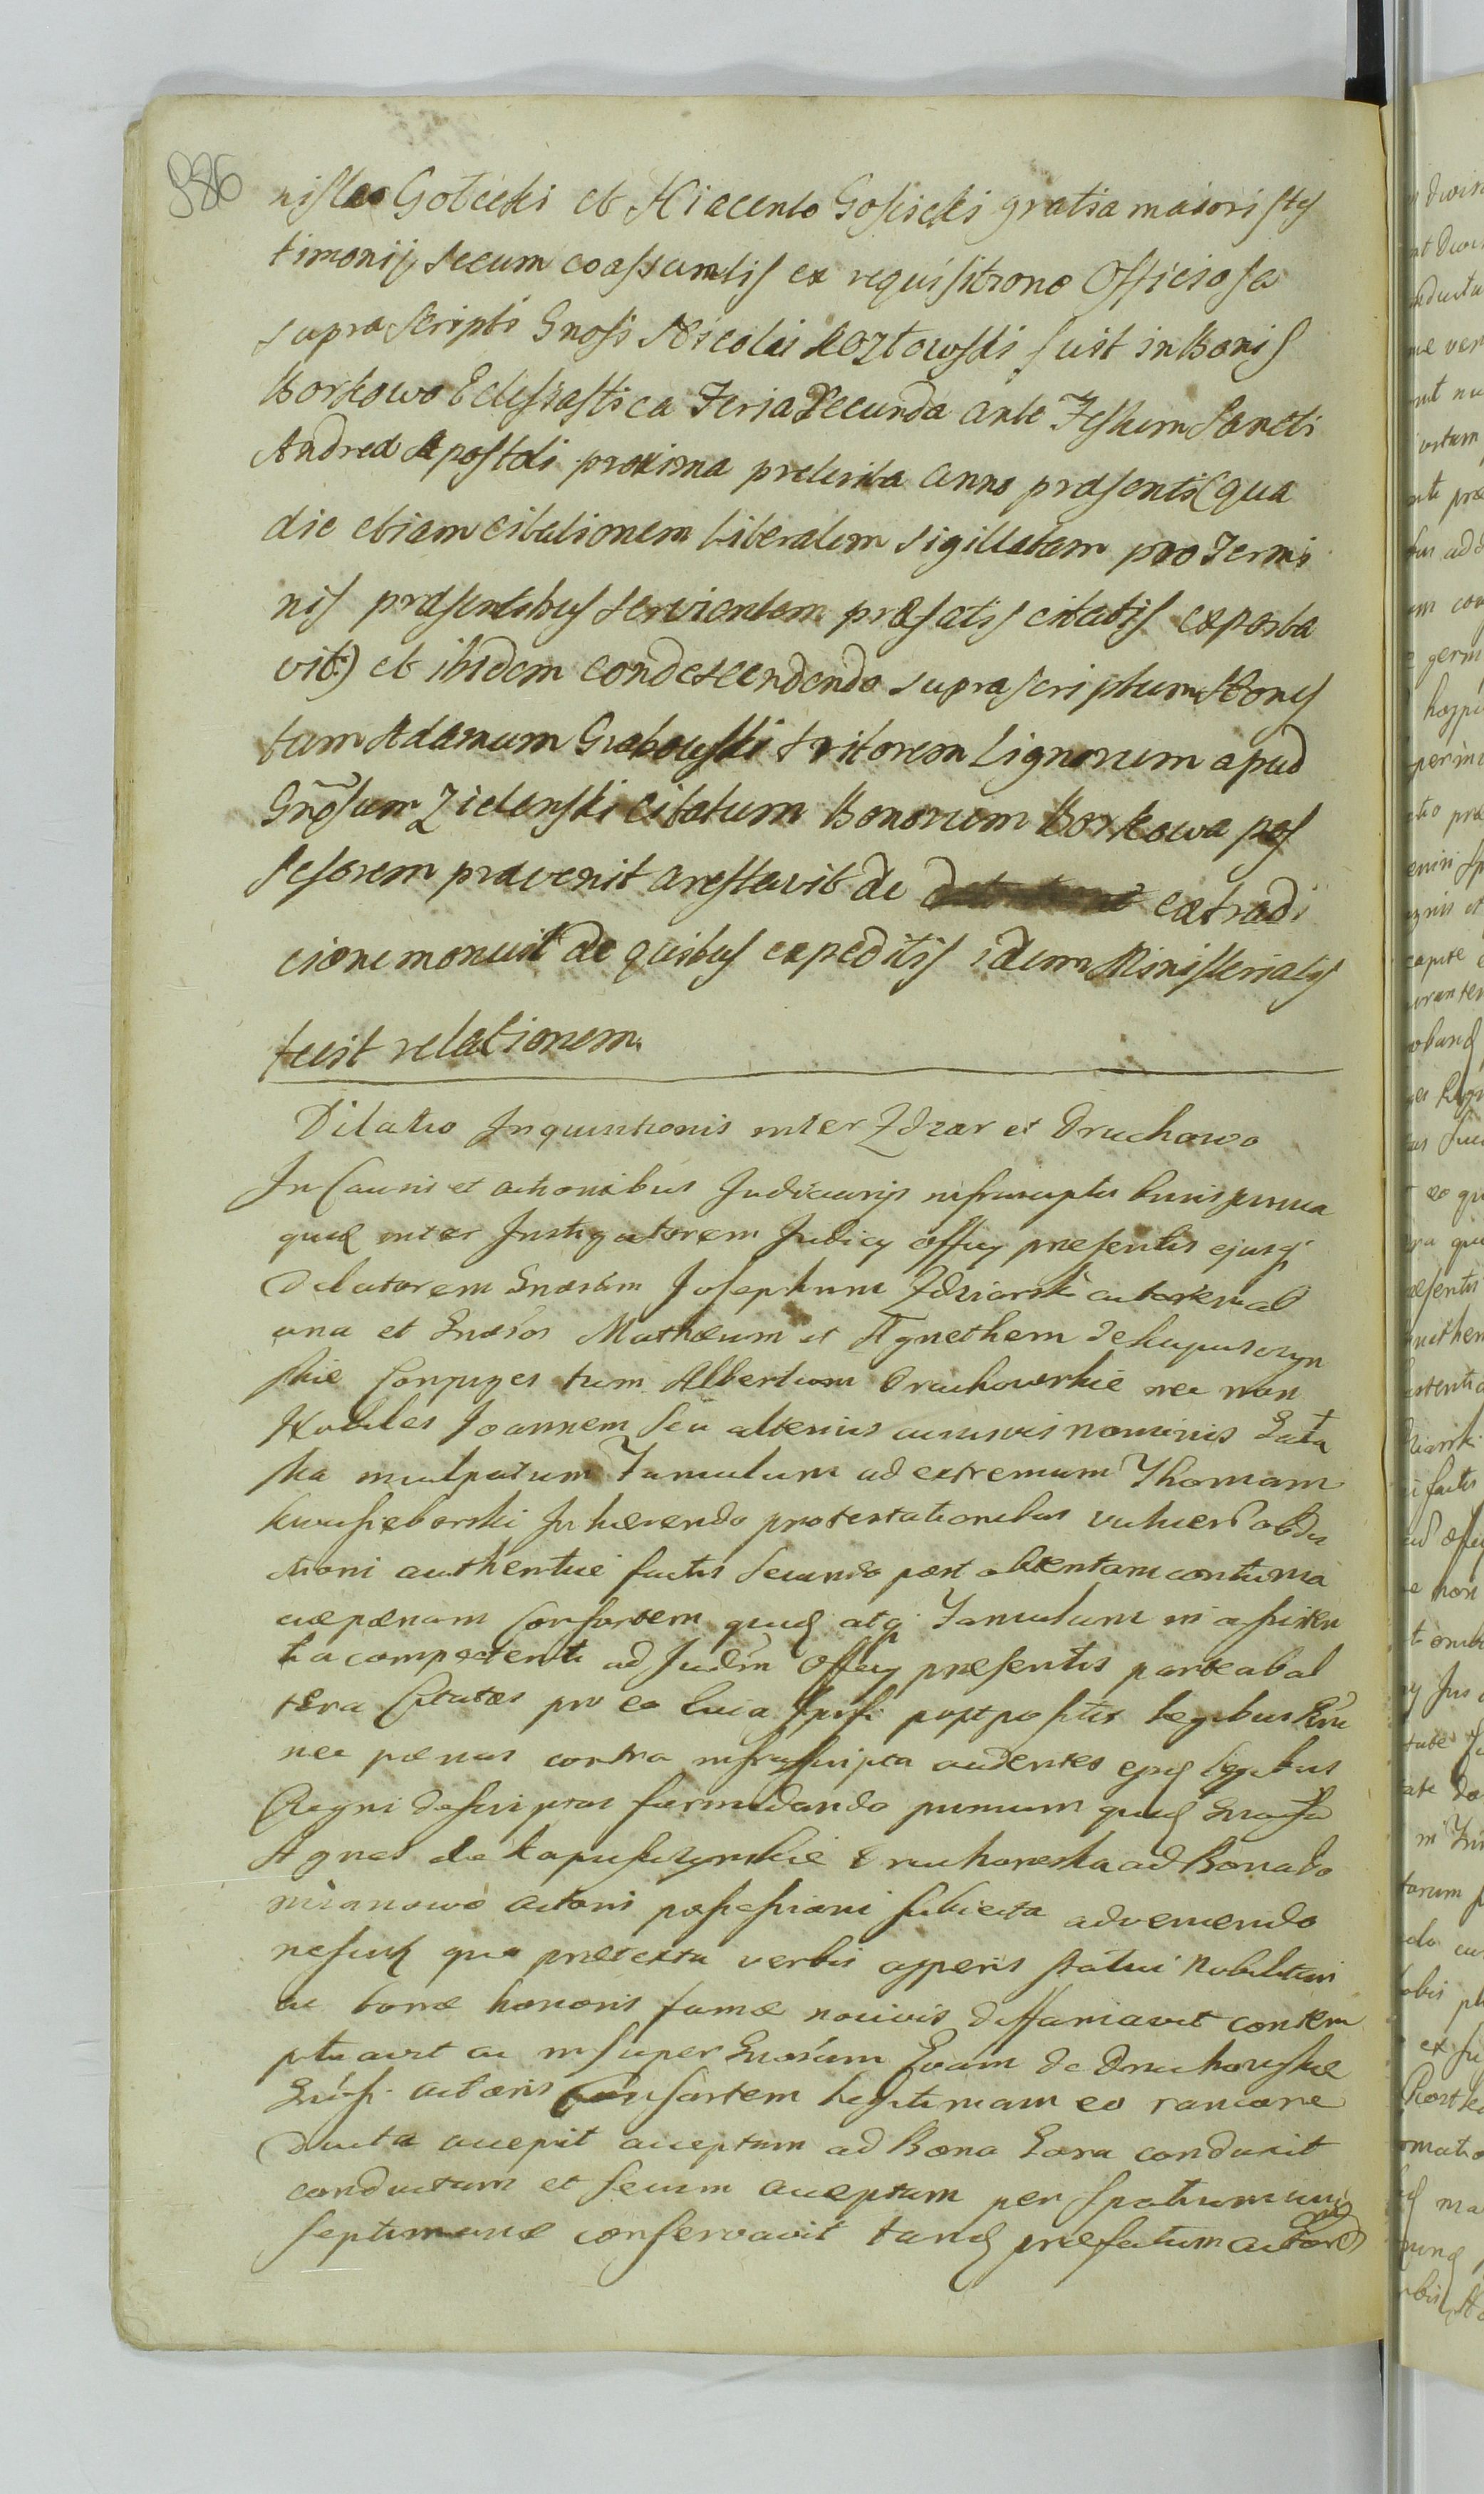 586
nislao Gościcki et Hiacento Gościcki gratia maioris tes
timonij secum coassumtis ex requisitione Officiosa
supra scripti Gnosi Nicolai Kozłowski fuit in Bonis
Borkowo Eclesiastica Feria Secunda ante Festum Sancti
Andreæ Apostoli proxima preterita anno præsenti (qua
die etiam citationem literalem sigillatam pro Termi
nis præsentibus servientem præfatis citatis exporta
vit:) et ibidem condescendendo supra scriptum Hones
tum Adamum Grabowski tritorem Lignorum apud
Gnõsum Zielenski citatum Bonorum Borkowa pos
sesorem prævenit arestavit de extradi
cione monuit de quibus expeditis idem Ministerialis
fecit relationem.
Dilatio Inquisitionis inter Zdzar et Druchowo
In Causis et actionibus Judiciarijs infrascriptis binis prima
quid inter Instigatorem Judicij Officij præsentis ejusq
delatorem Gnosum Josephum Zdziarski actorem ab
una et Gnosos Mathæum et Agnethem de Kapuscyn
skie Conjuges tum Albertum Druchowskie nec non
Nobiles Joannem seu alterius cujusvis nominis
ska inculpatum Famulum ad extremum Thomam
Inhærendo protestationibus vulner obdu
ctioni authenticæ factis secundo post obtentam contuma
ciæ pænam Consortem quid atq Famulum in assisten
tia competenti ad Judm Officij præsentis parte ab al
tera Citatos pro eo Quia Ipsi postpositis legibus
nec pænas contra infrascripta audentes legibus
Regni descriptas formidando primum quid Gnosa
Agnes de Kapuscynskie Druchowska ad Bona Do
miranowo actoris possessioni subiecta adveniendo
nescitq quo prætextu verbis asperis statui Nobilitari
ac bonæ honoris famæ nocivis diffamavit contem
ptuavit ac insuper Gnosam Evam de Druchowskie
Gnosi actoris Consortem legitimam eo rancore
ducta accepit acceptam ad Bona conduxit
conductam et secum acceptam per spatium unius
septimanæ conservavit tandq præfatum actorem